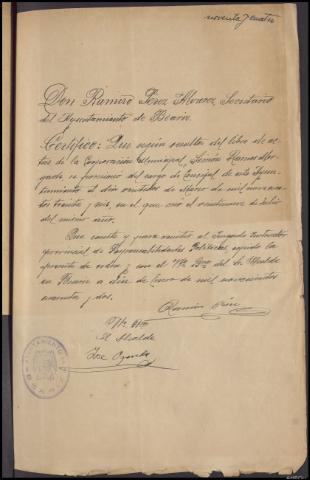 noventa y cuatro
Don Ramiro Pérez Alvarez, Secretario
del Ayuntamiento de
Certifico: Que según resulta del libro de ac-
tas de la Corporación Municipal,
se posesionó del cargo de Concejal de este Ayun-
tamiento el día de Marzo de mil novecien-
tos treinta y seis, en el que cesó el veintinueve de Julio
del mismo año.
Que conste y para remitir al Juzgado Instructor
provincial de Responsabilidades Políticas, expido la
presente de orden y con el Vº Bº del Sr Alcalde
en a de Enero de mil novecientos
cuarenta y dos.
Ramiro Pérez
Vº Bº
El Alcalde
José
AYUNTAMIENTO